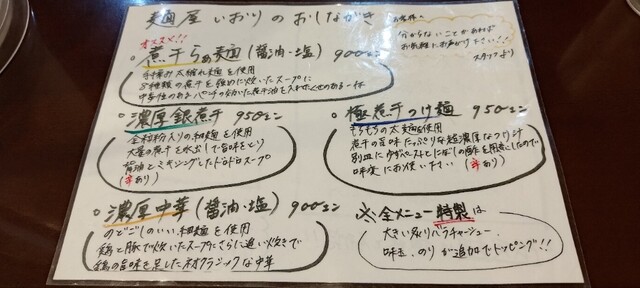 麺屋 いおりのおしながき
お客様へ
分からないことがあれば
お気軽にお声がけ下さい!!
スタッフより
オススメ!!
煮干らぁ麺 (醤油・塩) 900エン
手揉み太縮れ麺を使用
数種類の煮干を強めに炊いたスープに
中毒性のあるパンチのきいた煮干油を入れたくせのある一杯
濃厚銀煮干 950エン
全粒粉入りの細麺を使用
大量の煮干を水出しで旨味をとり
背油とミキシングしたドロドロスープ
(辛あり)
極煮干つけ麺 950エン
もちもちの太麺を使用
煮干の旨味たっぷりな超濃厚なつけ汁
別皿にゆずペーストとにぼしの酢を用意したので
味変にお使い下さい (辛あり)
濃厚中華 (醤油・塩) 900エン
のどごしのいい細麺を使用
鶏と豚で炊いたスープにさらに追い炊きで
鶏の旨味を足したネオクラシックな中華
※全メニュー特製は
大きい炙りバラチャーシュー、
味玉、のりが追加でトッピング!!